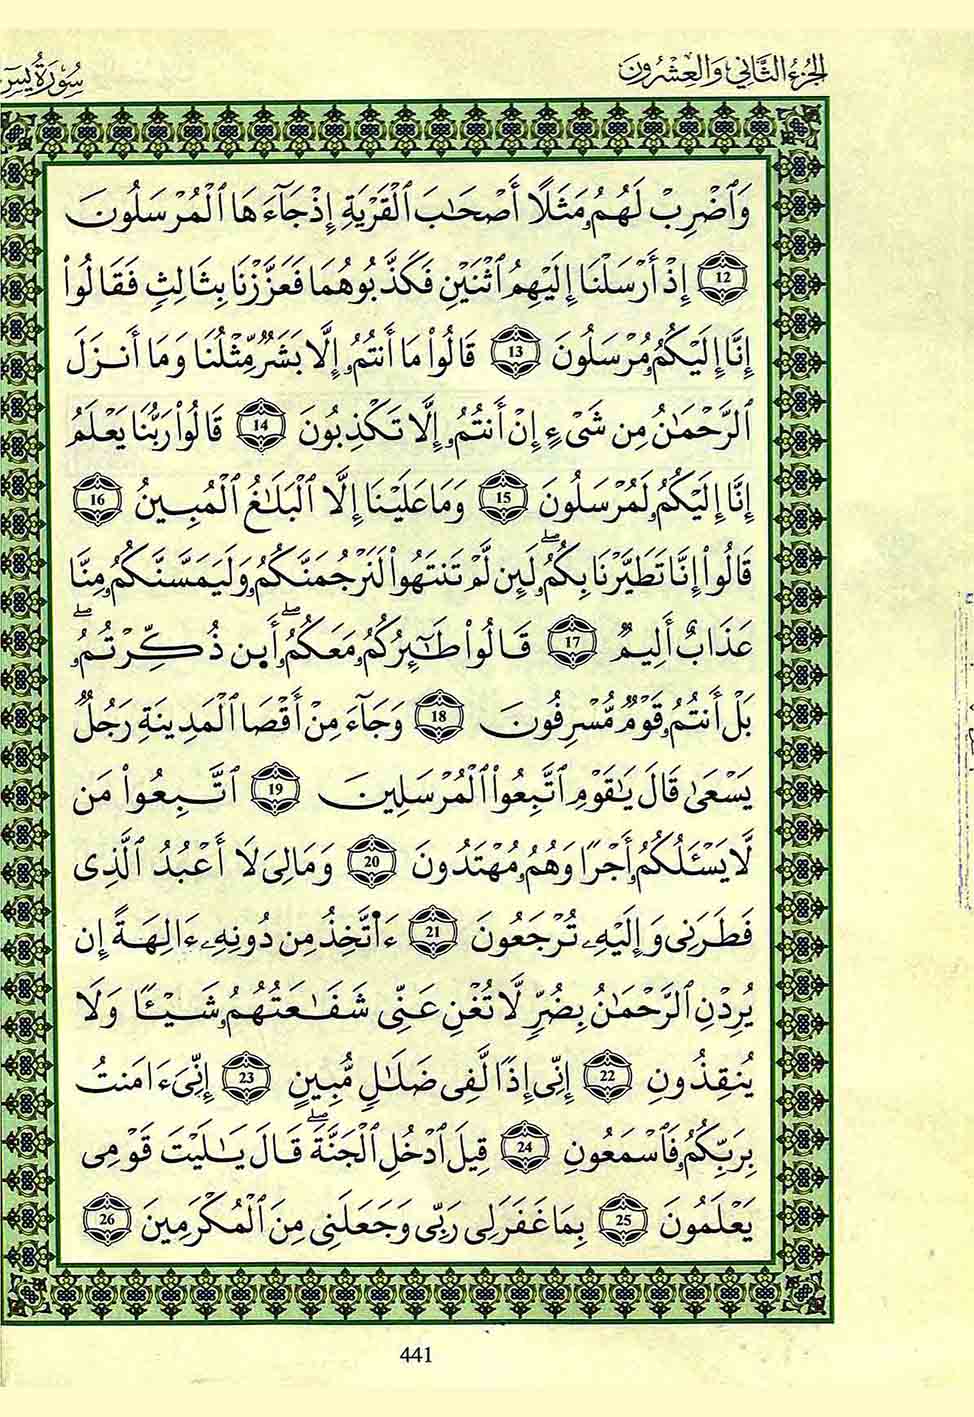 الجزء الثاني والعشرون
سورة يس
وَٱضْرِبْ لَهُمُۥ مَثَلًا أَصْحَٰبَ ٱلْقَرْيَةِ إِذْ جَآءَهَا ٱلْمُرْسَلُونَ
12 إِذْ أَرْسَلْنَا إِلَيْهِمُ ٱثْنَيْنِ فَكَذَّبُوهُمَا فَعَزَّزْنَا بِثَالِثٍ فَقَالُوا۟
إِنَّا إِلَيْكُمُۥ مُرْسَلُونَ 13 قَالُوا۟ مَا أَنتُمُۥ إِلَّا بَشَرٌ مِّثْلُنَا وَمَا أَنزَلَ
ٱلرَّحْمَٰنُ مِن شَىْءٍ إِنْ أَنتُمُۥ إِلَّا تَكْذِبُونَ 14 قَالُوا۟ رَبُّنَا يَعْلَمُ
إِنَّا إِلَيْكُمُۥ لَمُرْسَلُونَ 15 وَمَا عَلَيْنَا إِلَّا ٱلْبَلَٰغُ ٱلْمُبِينُ 16
قَالُوا۟ إِنَّا تَطَيَّرْنَا بِكُمُۥۖ لَئِن لَّمْ تَنتَهُوا۟ لَنَرْجُمَنَّكُمُۥ وَلَيَمَسَّنَّكُمُۥ مِنَّا
عَذَابٌ أَلِيمٌ 17 قَالُوا۟ طَٰٓئِرُكُمُۥ مَعَكُمُۥۖ أَٮِٕن ذُكِّرْتُمُۥۖ
بَلْ أَنتُمُۥ قَوْمٌ مُّسْرِفُونَ 18 وَجَآءَ مِنْ أَقْصَا ٱلْمَدِينَةِ رَجُلٌ
يَسْعَىٰ قَالَ يَٰقَوْمِ ٱتَّبِعُوا۟ ٱلْمُرْسَلِينَ 19 ٱتَّبِعُوا۟ مَن
لَّا يَسْـَٔلُكُمُۥ أَجْرًا وَهُمُۥ مُهْتَدُونَ 20 وَمَا لِىَ لَا أَعْبُدُ ٱلَّذِى
فَطَرَنِى وَإِلَيْهِۦ تُرْجَعُونَ 21 ءَا۬تَّخِذُ مِن دُونِهِۦ ءَالِهَةً إِن
يُرِدْنِ ٱلرَّحْمَٰنُ بِضُرٍّ لَّا تُغْنِ عَنِّى شَفَٰعَتُهُمُۥ شَيْـًٔا وَلَا
يُنقِذُونِ 22 إِنِّى إِذًا لَّفِى ضَلَٰلٍ مُّبِينٍ 23 إِنِّىَ ءَامَنتُ
بِرَبِّكُمُۥ فَٱسْمَعُونِ 24 قِيلَ ٱدْخُلِ ٱلْجَنَّةَۖ قَالَ يَٰلَيْتَ قَوْمِى
يَعْلَمُونَ 25 بِمَا غَفَرَ لِى رَبِّى وَجَعَلَنِى مِنَ ٱلْمُكْرَمِينَ 26
441